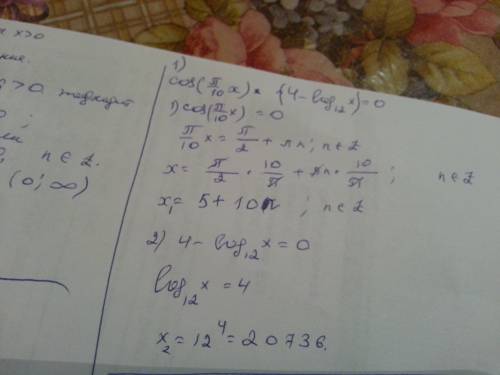 x>0
>0
n ∈ Z.
(0; ∞)
1)
cos(π/10 x) * (4 - log₁₂x) = 0
1) cos(π/10 x) = 0
π/10 x = π/2 + πn; n ∈ Z
x = π/2 · 10/π + πn · 10/π ; n ∈ Z
x₁ = 5 + 10n ; n ∈ Z
2) 4 - log₁₂ x = 0
log₁₂ x = 4
x₂ = 12⁴ = 20736.